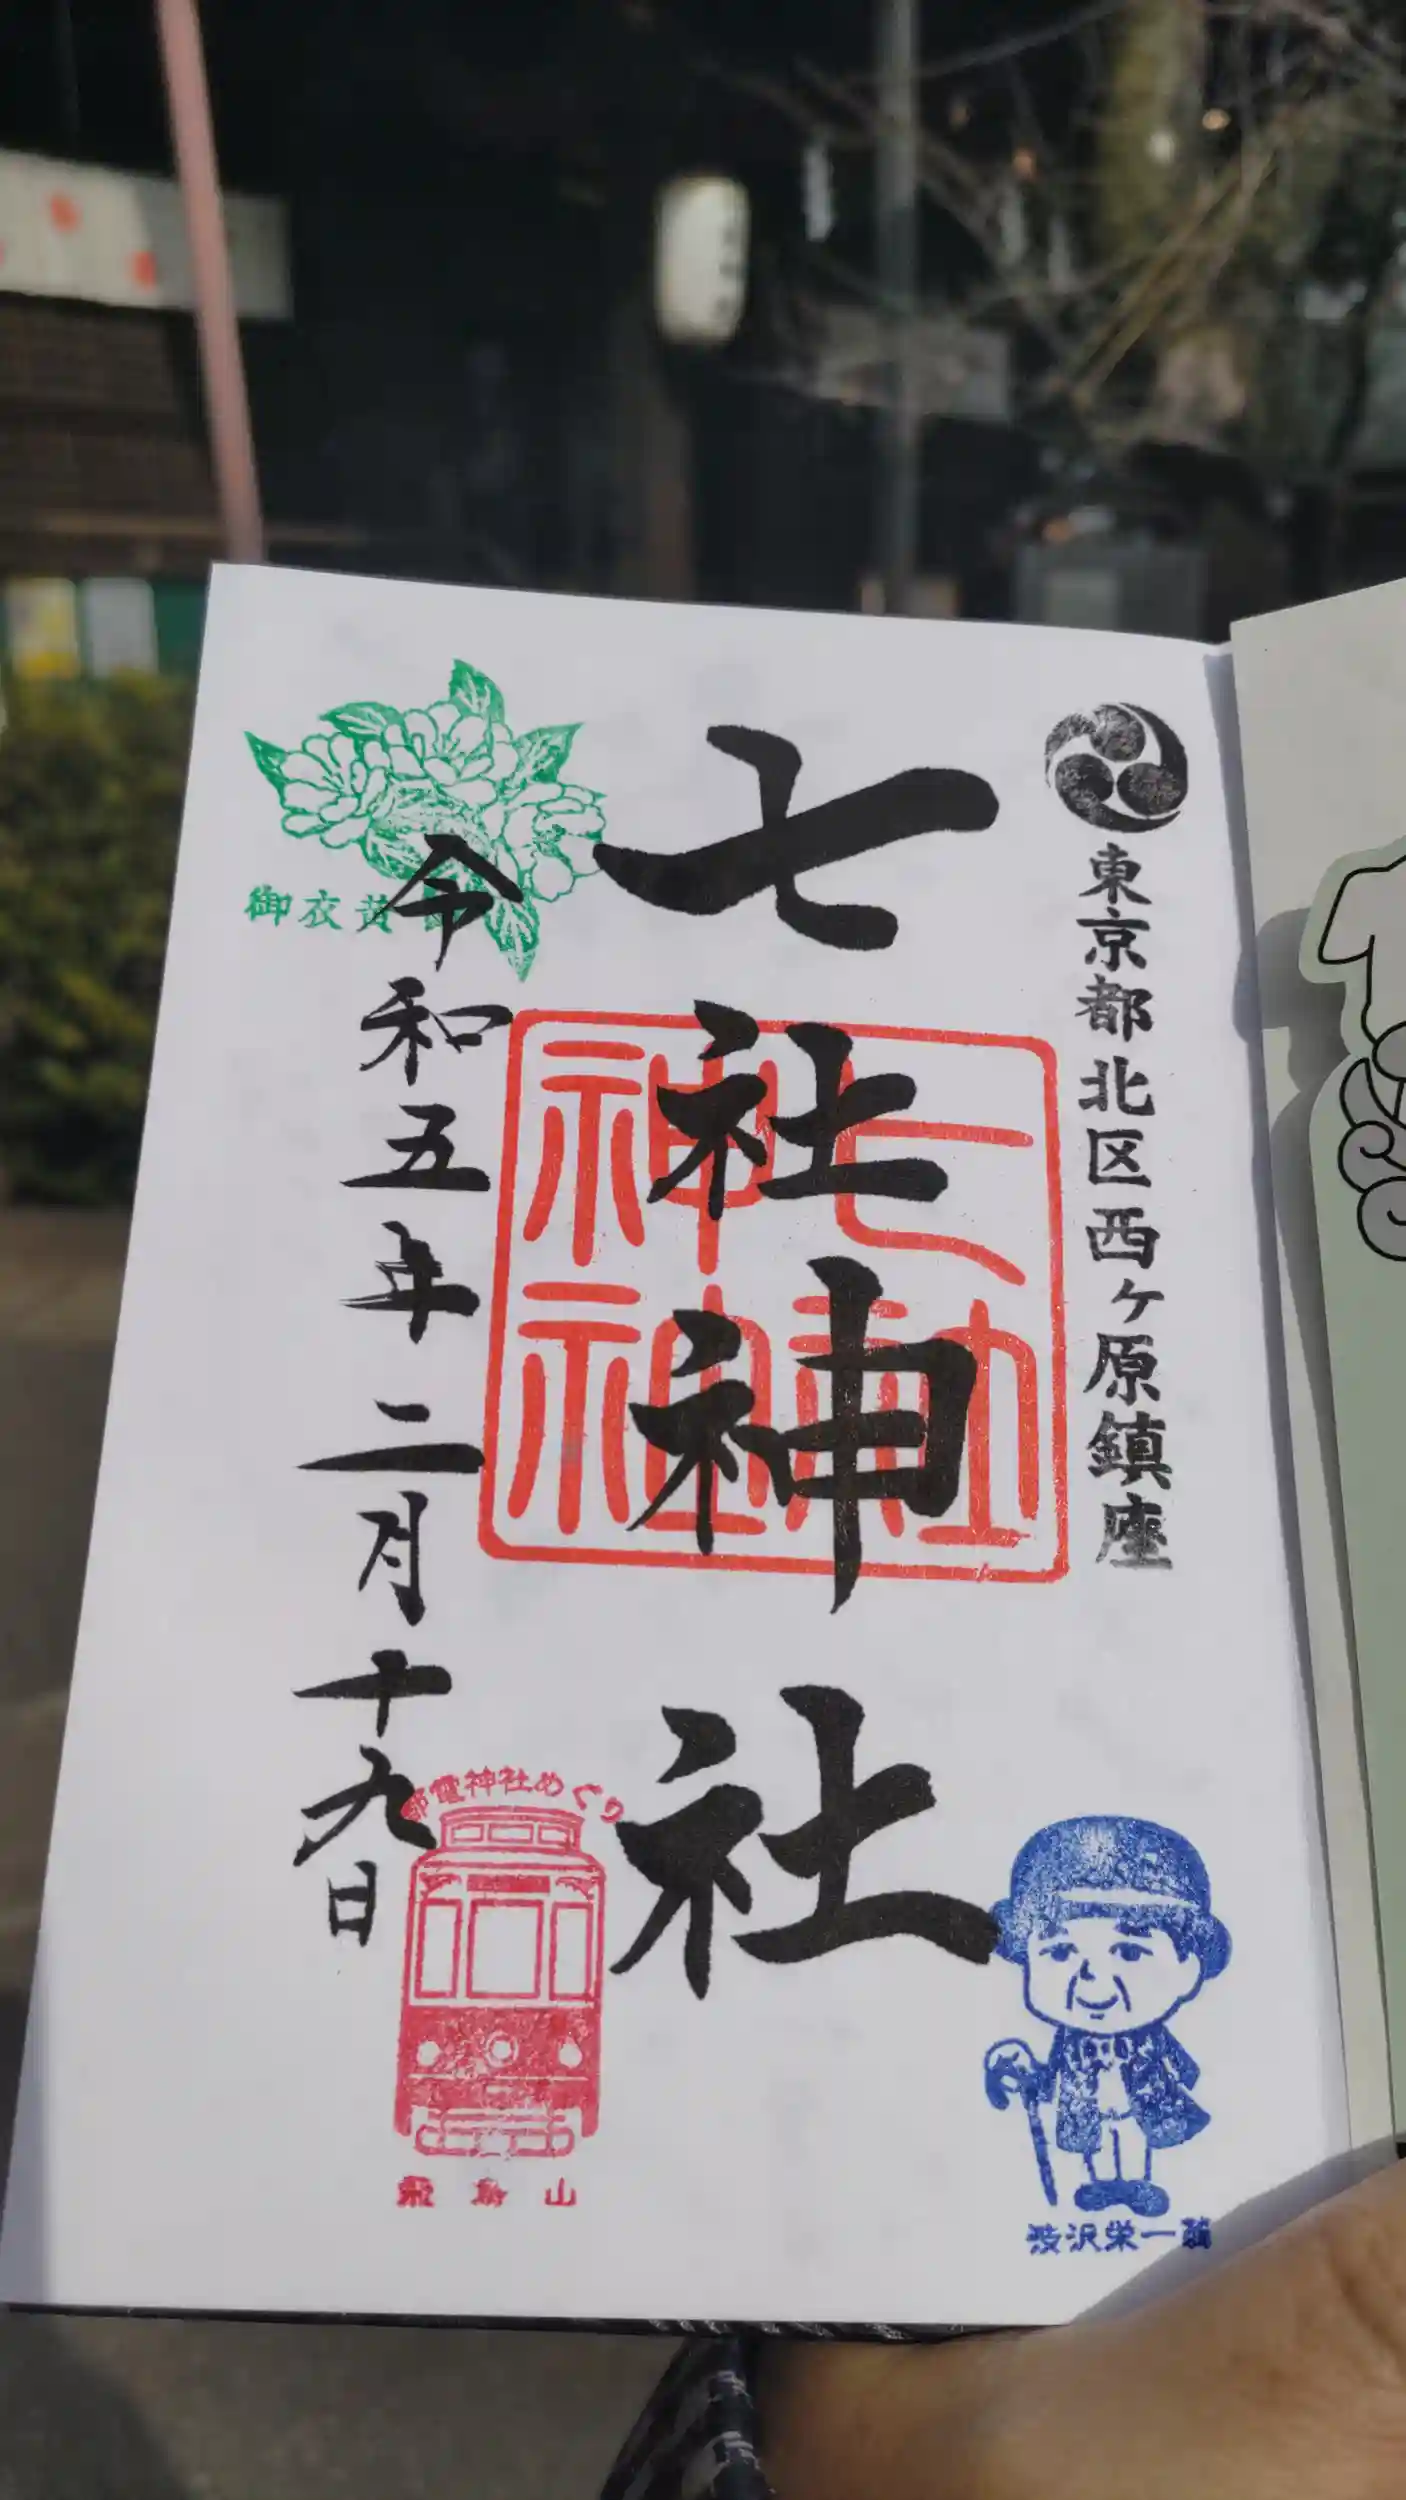 東京都北区西ヶ原鎮座
七社神社
令和五年二月十九日
御衣黄
七社神社
都電神社めぐり
飛鳥山
渋沢栄一翁